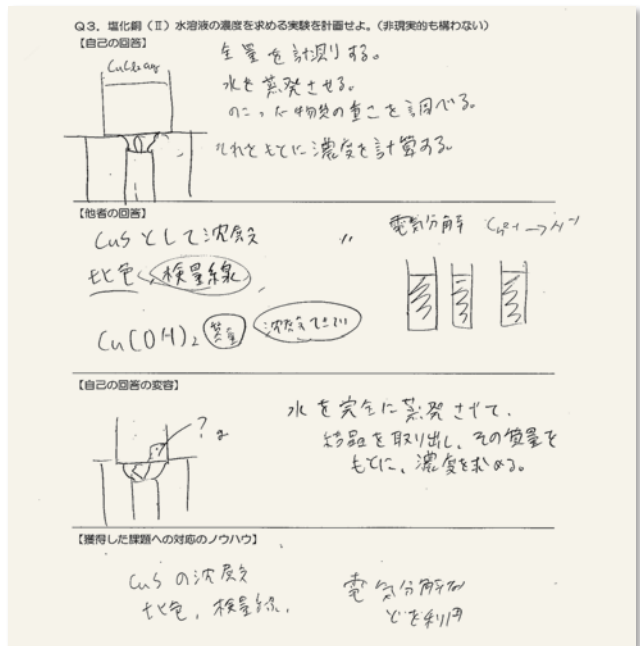 Q3．塩化銅（Ⅱ）水溶液の濃度を求める実験を計画せよ。（非現実的も構わない）
【自己の回答】
全量を計測りする。
水を蒸発させる。
のこった物質の重さを調べる。
それをもとに濃度を計算する。
【他者の回答】
CuSとして沈殿
電気分解
比色、検量線
Cu(OH)₂
【自己の回答の変容】
? g
水を完全に蒸発させて、
結晶を取り出し、その質量を
もとに、濃度を求める。
【獲得した課題への対応のノウハウ】
CuSの沈殿
比色，検量線，
電気分解な
どを利用